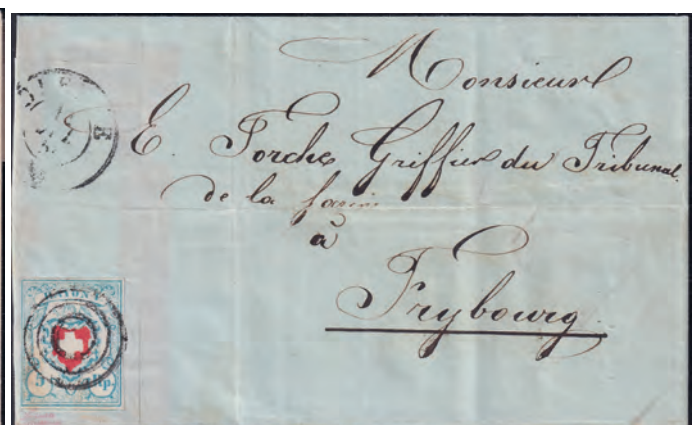 Monsieur
E. Porche Griffier du Tribunal.
de la
à
Frybourg.
5 Rp.